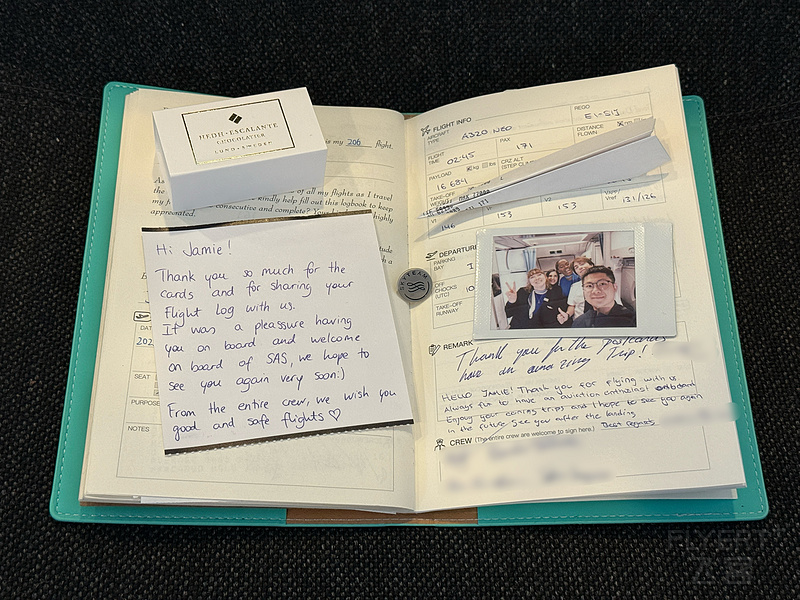 HEDH·ESCALANTE
CHOCOLATIER
LUND·SWEDEN
is my 200 flight.
of all my flights as I travel
kindly help fill out this logbook to keep
consecutive and complete?
highly
appreciated.
Hi Jamie!
Thank you so much for the
cards and for sharing your
Flight log with us.
It was a pleassure having
you on board and welcome
on board of SAS, we hope to
see you again very soon:)
From the entire crew, we wish you
good and safe flights ♡
DAT
202
SEAT
PURPOSE
NOTES
SKYTEAM
FLIGHT INFO
AIRCRAFT TYPE A320 NEO
REGO EI-SIJ
FLIGHT TIME 02:45
PAX 171
DISTANCE FLOWN
PAYLOAD kg lbs
16 684
CRZ ALT
(STEP CLIM
TAKE-OFF
V1 146
153
153
131/126
DEPARTU
PARKING BAY
OFF CHOCKS (UTC) 10
TAKE-OFF RUNWAY
REMARK
Thank you for the postcards
have an amazing trip!
HELLO JAMIE! Thank you for flying with us
Always fun to have an aviation enthusiast onboard
Enjoy your coming trips and I hope to see you again
in the future. See you after the landing
Best regards
CREW (The entire crew are welcome to sign here.)
FLYERT